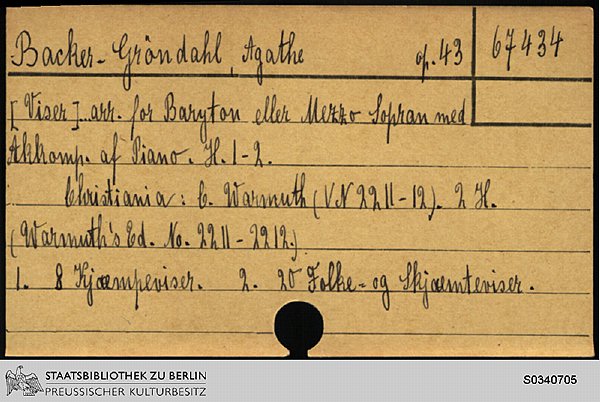 Backer-Gröndahl, Agathe op. 43 67434
[Viser]...arr. for Baryton eller Mezzo Sopran med
Akkomp. af Piano. H. 1-2.
Christiania: C. Warmuth (VN 2211-12). 2 H.
(Warmuth's Ed. No. 2211-2212.)
1. 8 Kjæmpeviser. 2. 20 Folke- og Skjæmteviser.
STAATSBIBLIOTHEK ZU BERLIN
PREUSSISCHER KULTURBESITZ
S0340705